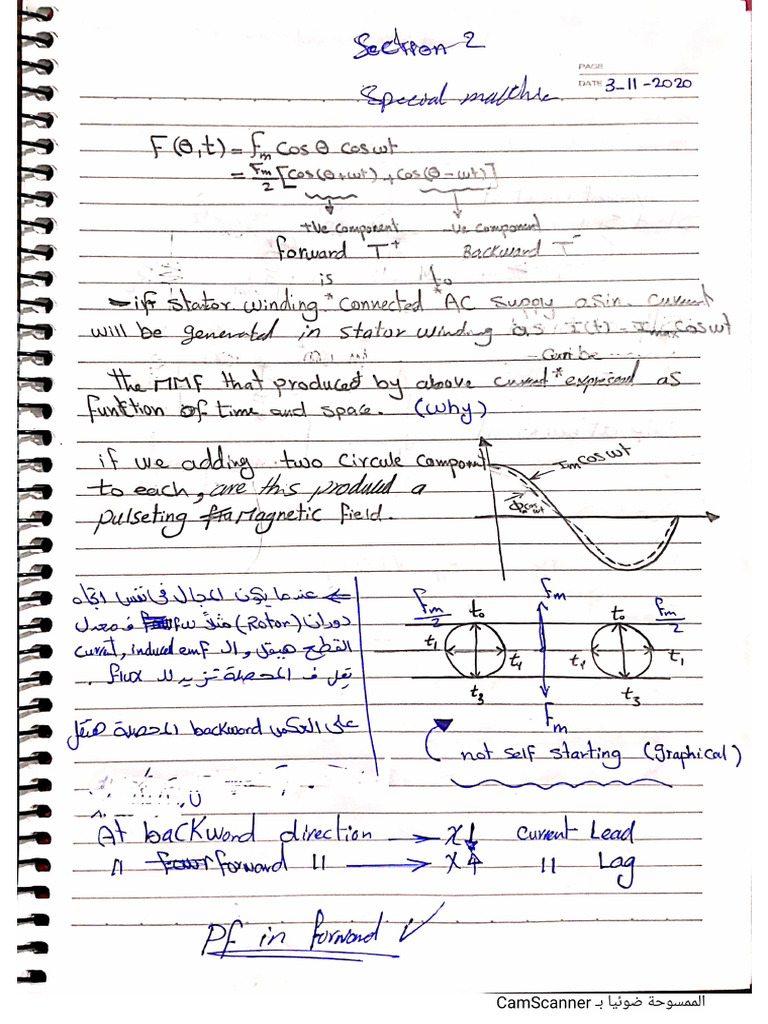 Section 2
PAGE
DATE 3-11-2020
Special machine
F(θ,t) = fm Cos θ cos wt
= Fm/2 [Cos(θ+wt) + Cos(θ-wt)]
+Ve component -Ve Component
forward T+ Backward T-
is to
- if stator winding * connected * AC supply asin current
will be generated in stator winding as I(t) = Imax cos wt
Can be
the MMF that produced by above current * expresed as
function of time and space. (why)
if we adding two circule component
to each, are this produced a
pulseting Magnetic field.
Im cos wt
عندما يكون المجال فى نفس اتجاه
دوران (Rotor) مثلاً fw فمعدل
القطع هيقل و الـ current, induced emf
تقل ف المحصلة تزيد للـ flux.
على العكس backword المحصلة هتقل
fm/2 t0 fm t0 fm/2
t1 t1 t1 t1
t3 t3
Fm
not self starting (graphical)
At backword direction → X↓ Current Lead
" forward " → X↑ " Lag
Pf in forward ✓
الممسوحة ضوئيا بـ CamScanner